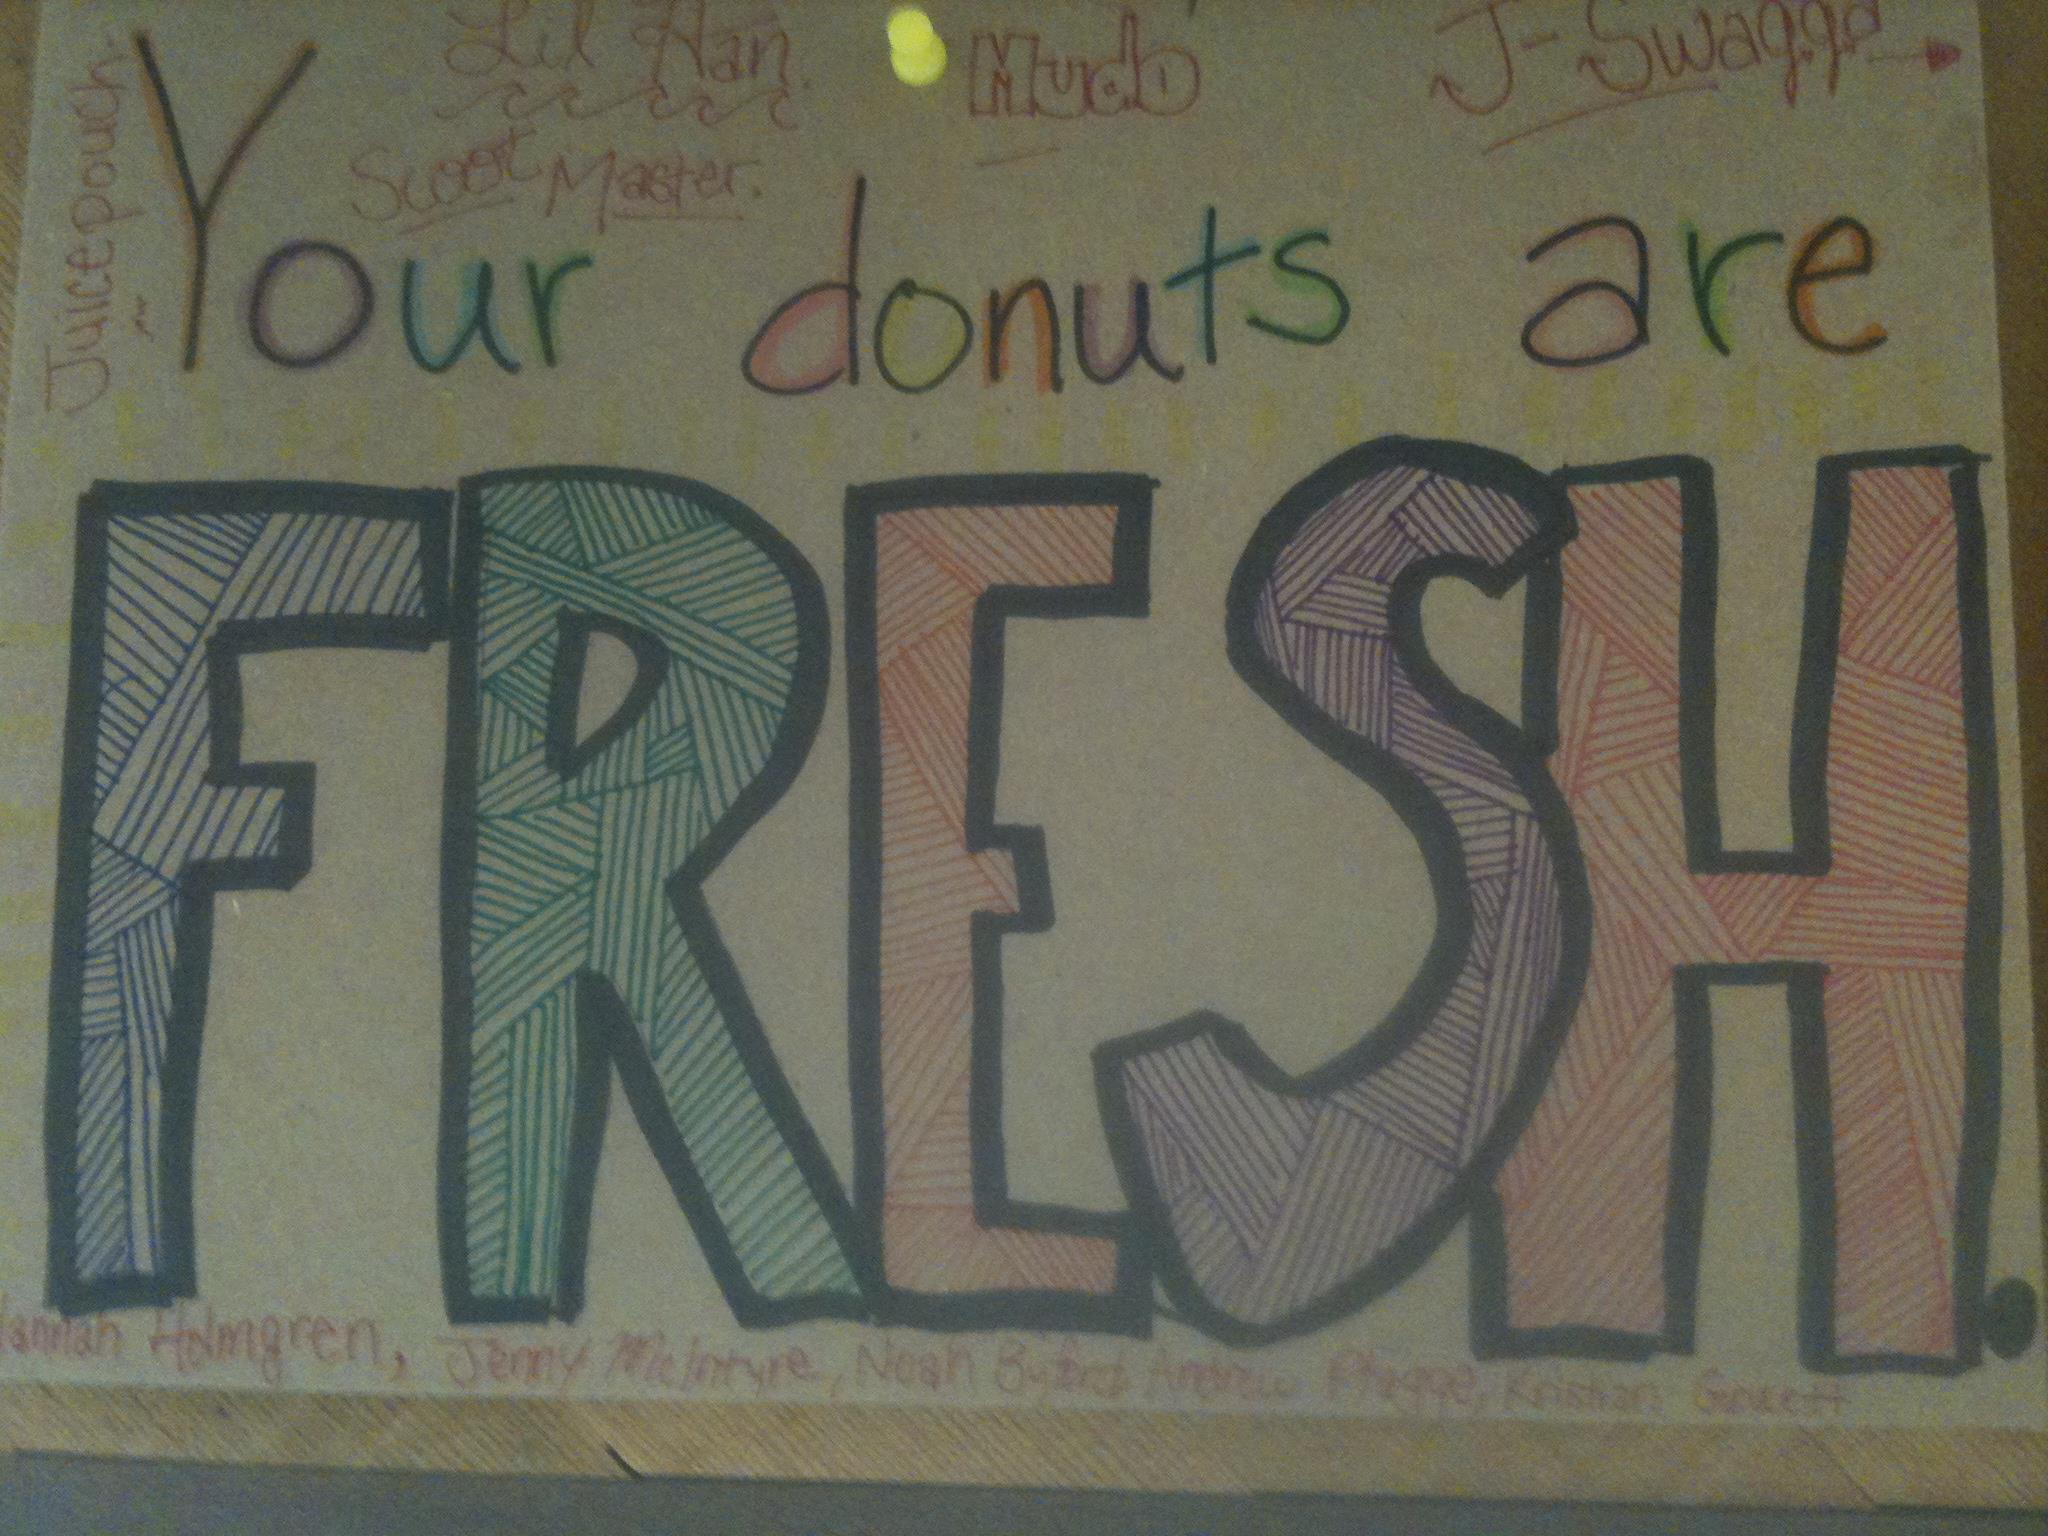 Juicepouch.
Lil Han.
Mudi
J-Swagga
Swoot Master.
Your donuts are
FRESH.
Hannah Holmgren, Jenny McIntyre, Noah Byford, Andrew Kristian